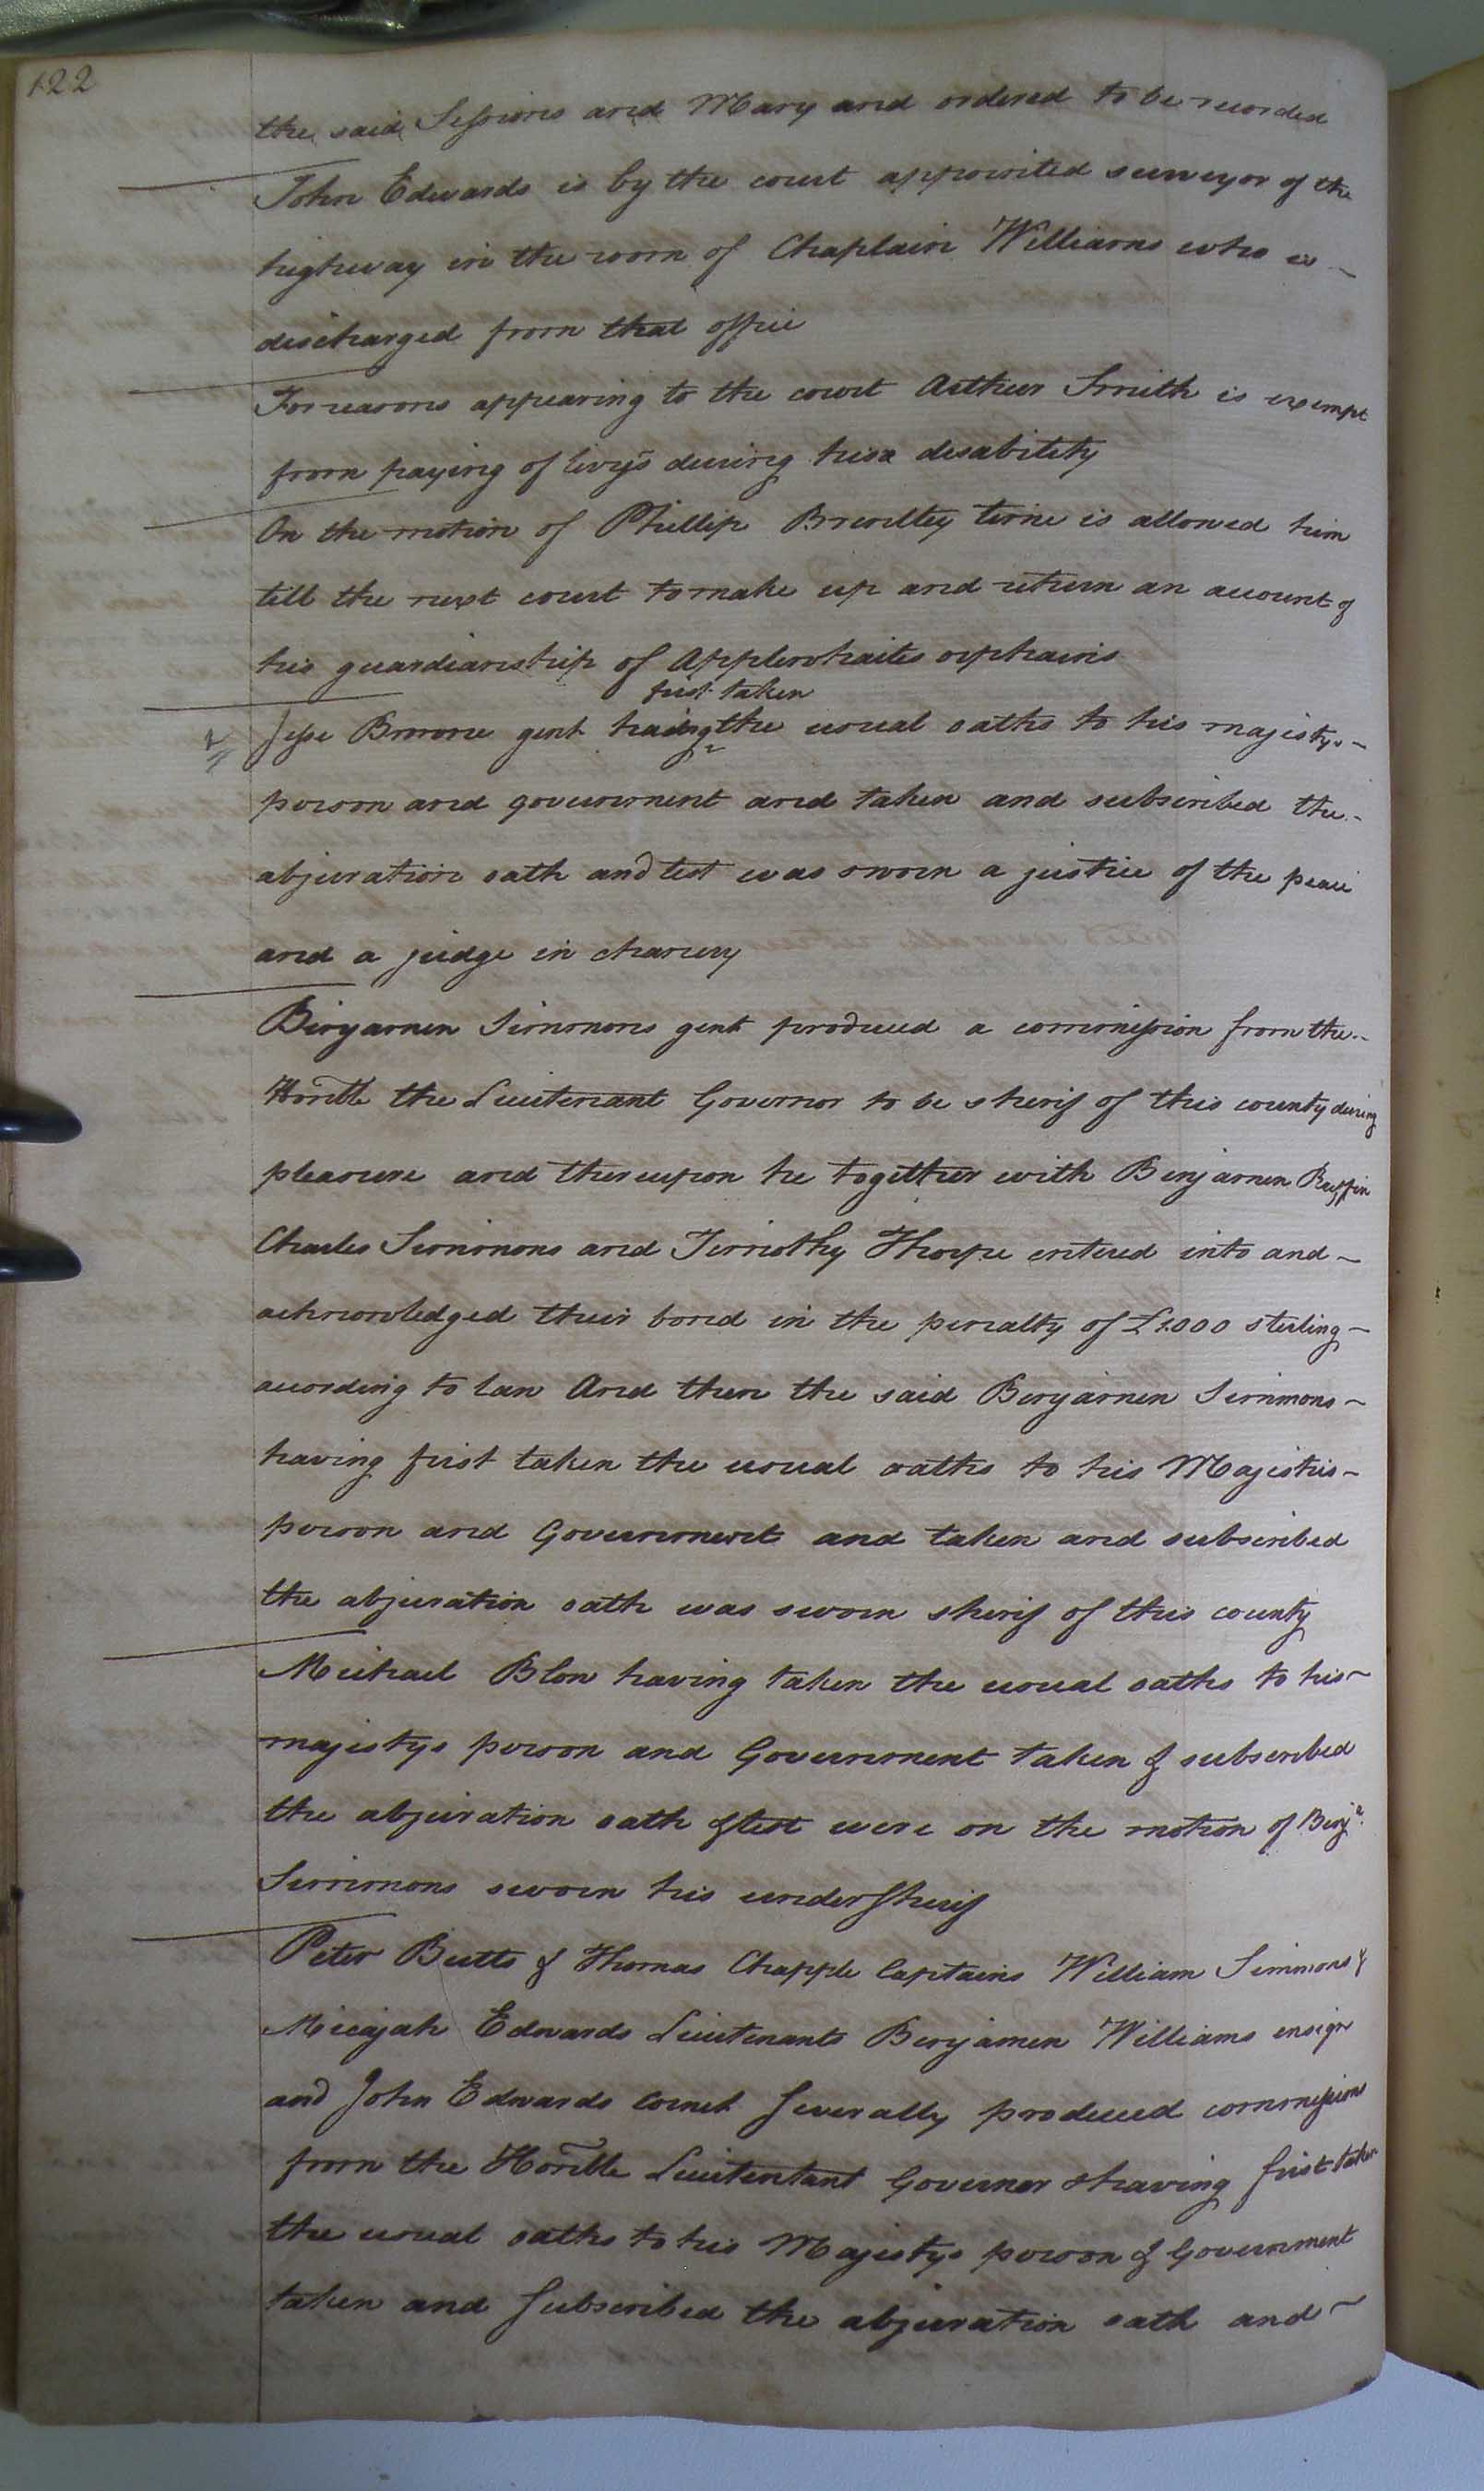 122
the said Sessions and Mary and ordered to be recorded
John Edwards is by the court appointed surveyor of the
highway in the room of Chaplain Williams who is
discharged from that office
For reasons appearing to the court Arthur Smith is exempt
from paying of levys during his disability
On the motion of Phillip time is allowed him
till the next court to make up and return an account of
his guardianship of Applewhaites orphains
first taken
Jesse Browne gent having the usual oaths to his majestys
person and government and taken and subscribed the
abjuration oath and test was sworn a justice of the peace
and a judge in chancery
Benjamen Simmons gent produced a commission from the
Honble the Lieutenant Governor to be sherif of this county during
pleasure and thereupon he together with Benjamen Ruffin
Charles Simmons and Timothy Thorpe entered into and
acknowledged their bond in the penalty of £1000 sterling
according to law And then the said Benjamen Simmons
having first taken the usual oaths to his Majesties
person and Government and taken and subscribed
the abjuration oath was sworn sherif of this county
Michael Blow having taken the usual oaths to his
majestys person and Government taken & subscribed
the abjuration oath & test were on the motion of Benja
Simmons sworn his under sherif
Peter Butts & Thomas Chapple Captains William Simmons &
Micajah Edwards Lieutenants Benjamen Williams ensign
and John Edwards cornet severally produced commissions
from the Honble Lieutentant Governor & having first taken
the usual oaths to his Majestys person & Government
taken and subscribed the abjuration oath and